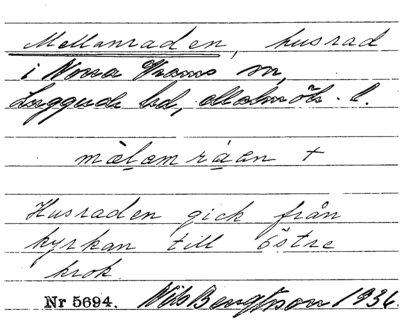 Mellanraden, husrad
i Norra Vrams sn,
Luggude hd, Malmöh. l.
mälamráan +
Husraden gick från
kyrkan till östre
krok
Nr 5694. Nils Bengtsson 1936.